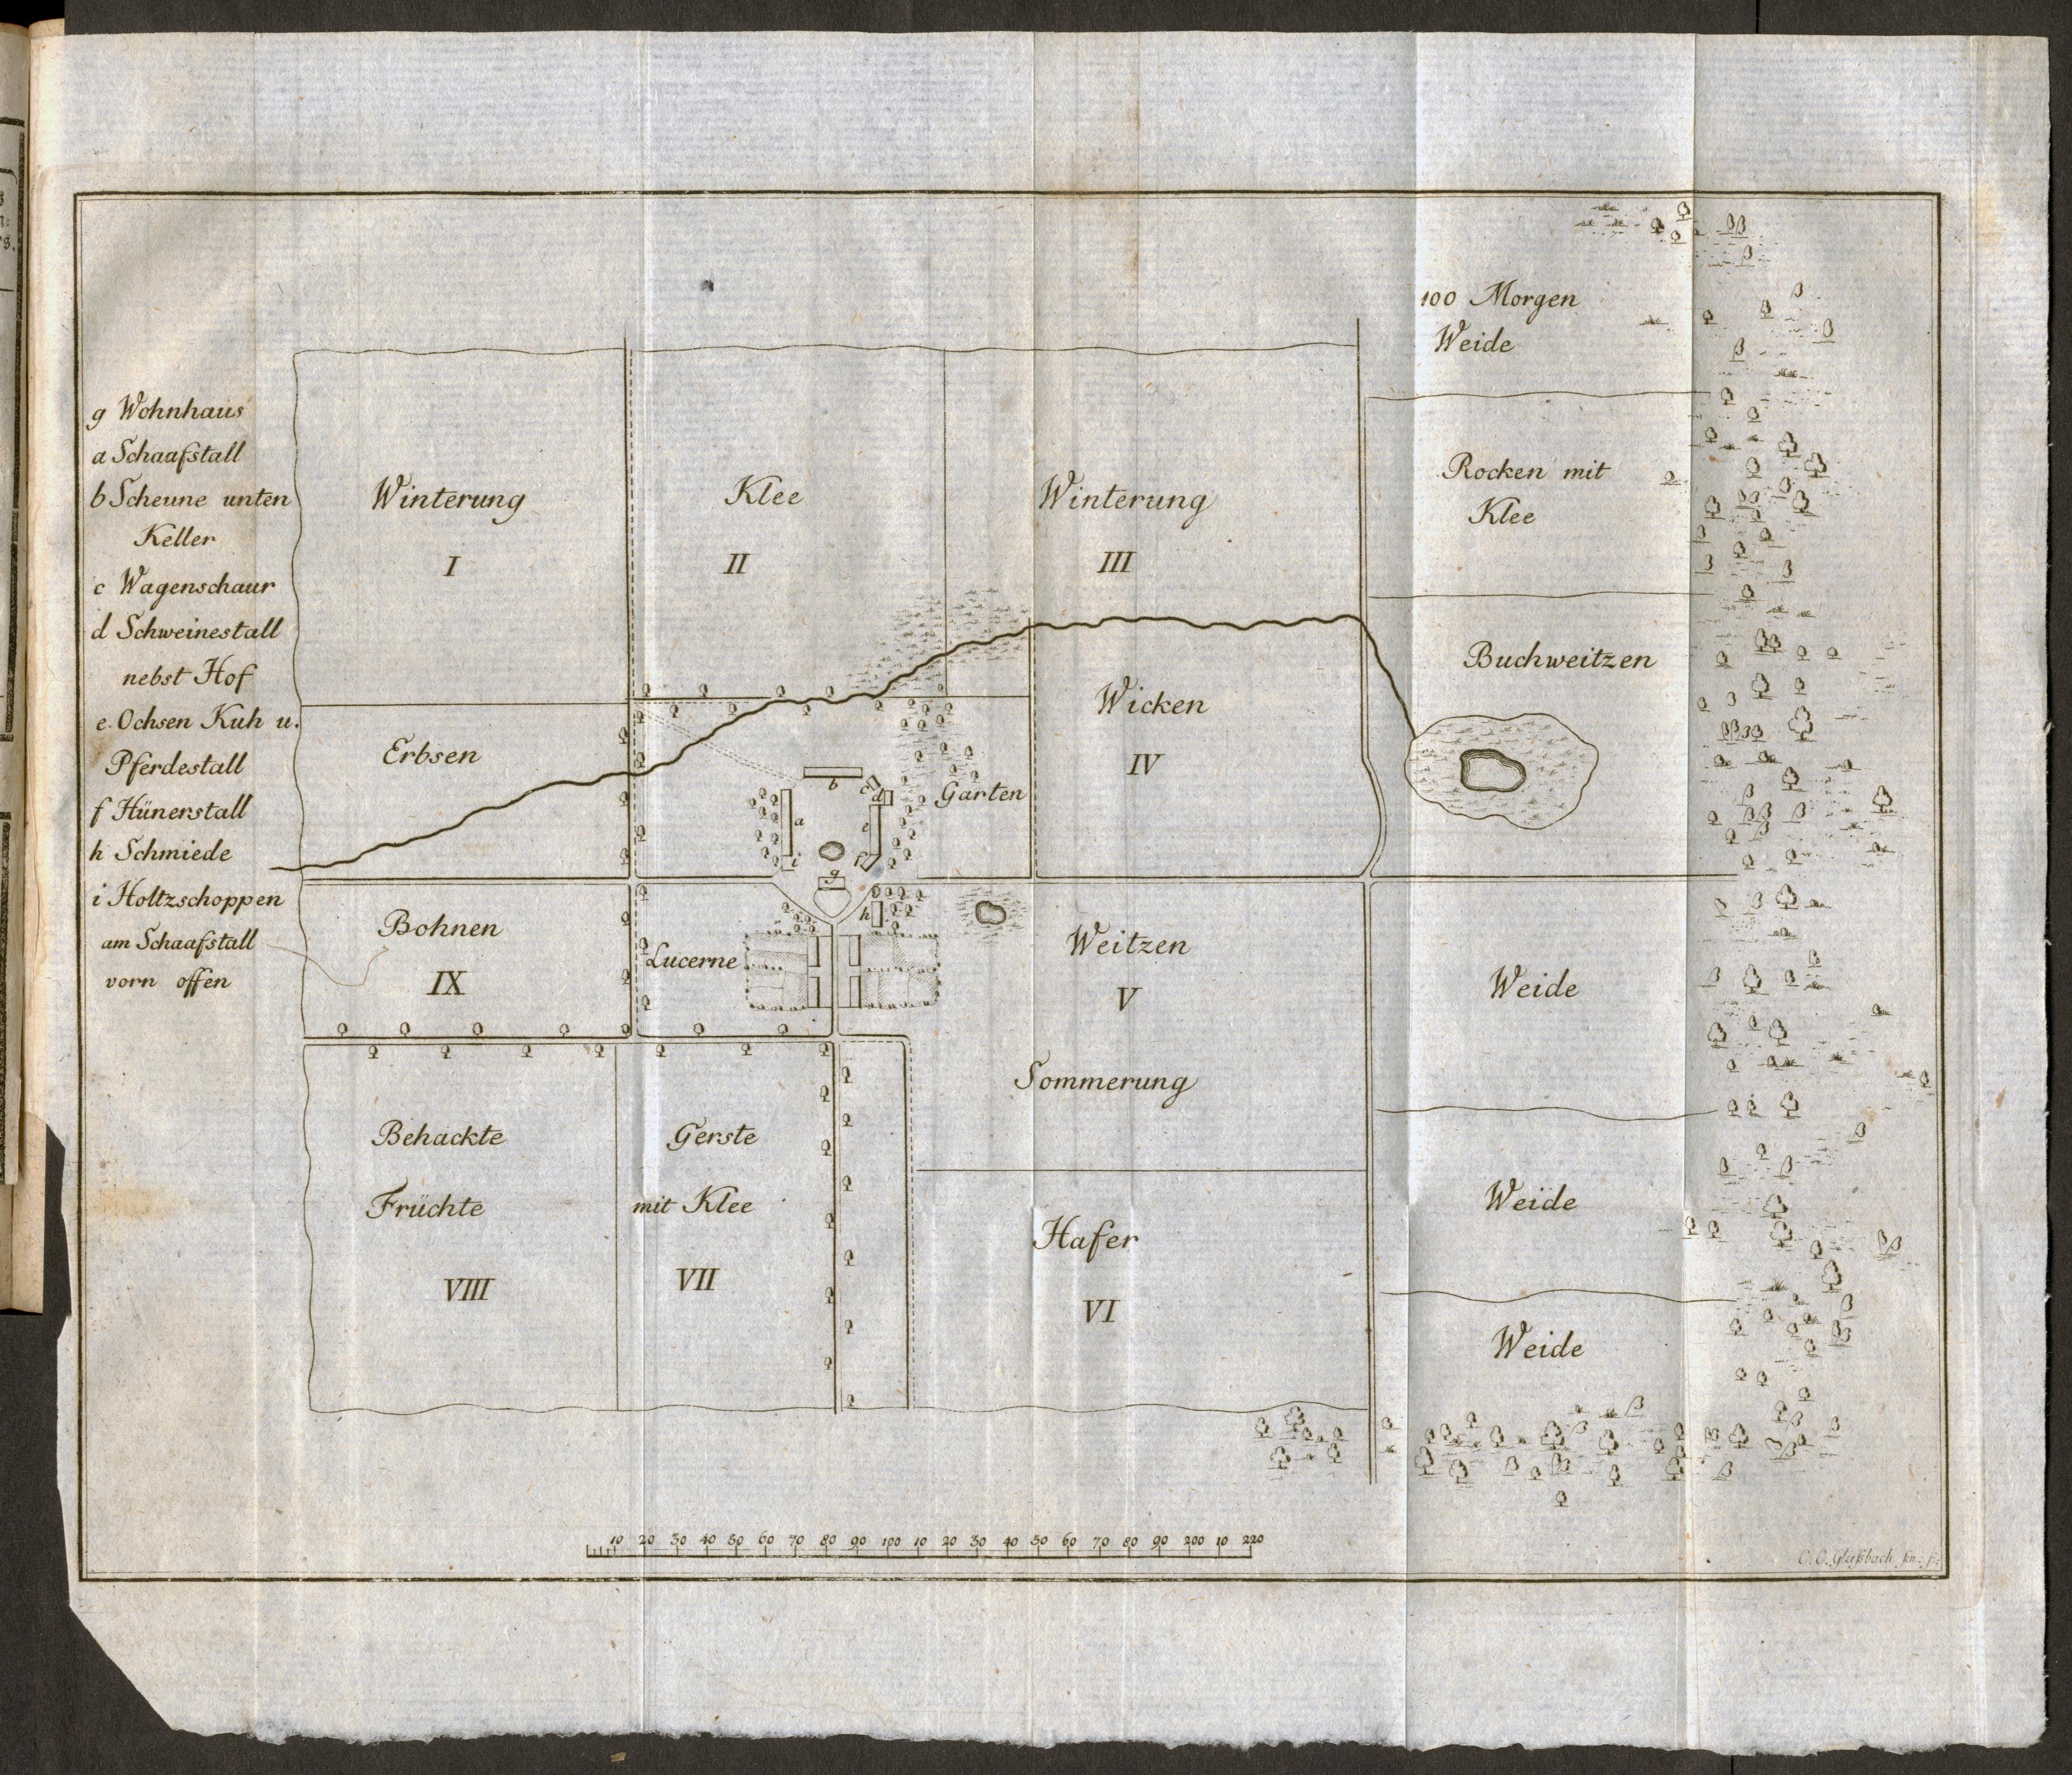 g Wohnhaus
a Schaafstall
b Scheune unten
Keller
c Wagenschaur
d Schweinestall
nebst Hof
e. Ochsen Kuh u.
Pferdestall
f Hünerstall
h Schmiede
i Holtzschoppen
am Schaafstall
vorn offen
100 Morgen
Weide
Winterung
I
Klee
II
Winterung
III
Rocken mit
Klee
Erbsen
Wicken
IV
Buchweitzen
Garten
b
c
d
a
e
i
f
g
h
Bohnen
IX
Lucerne
Weitzen
V
Sommerung
Weide
Behackte
Früchte
VIII
Gerste
mit Klee
VII
Hafer
VI
Weide
Weide
10 20 30 40 50 60 70 80 90 100 10 20 30 40 50 60 70 80 90 200 10 220